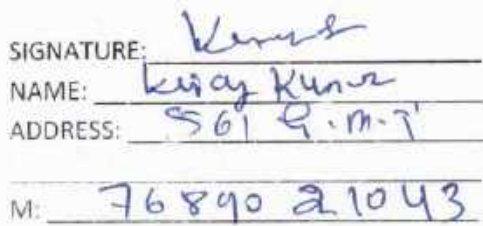 SIGNATURE:
NAME: Kumar
ADDRESS: 561 G.M.T
M: 76890 21043